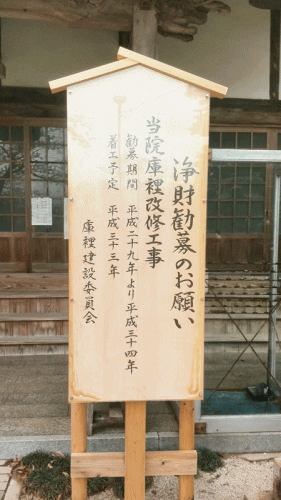 浄財勧募のお願い
当院庫裡改修工事
勧募期間 平成二十九年より平成三十四年
着工予定 平成三十三年
庫裡建設委員会